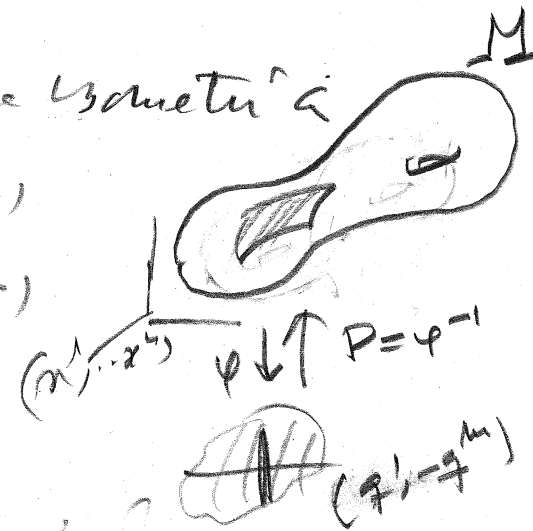 M
e isometri a
)
)
(x¹,..xⁿ)
φ ↓ ↑ P=φ⁻¹
(q¹,-qᵐ)